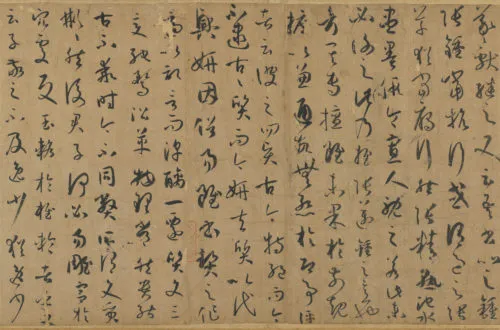 羲獻繼之又云吾書比之鍾
張鍾當抗行或謂過之張
草猶當雁行然張精熟池水
盡墨假令寡人耽之若此未
必謝之此乃推張邁鍾之意也
考其專擅雖未果於前規
摭以兼通故無慚於即事評
者云彼之四賢古今特絕而今
不逮古古質而今妍夫質以代
興妍因俗易雖書契之作
適以記言而淳醨一遷質文三
變馳騖沿革物理常然貴能
古不乖時今不同弊所謂文質
彬彬然後君子何必易雕宮於
穴處反玉輅於椎輪者乎又
云子敬之不及逸少猶逸少